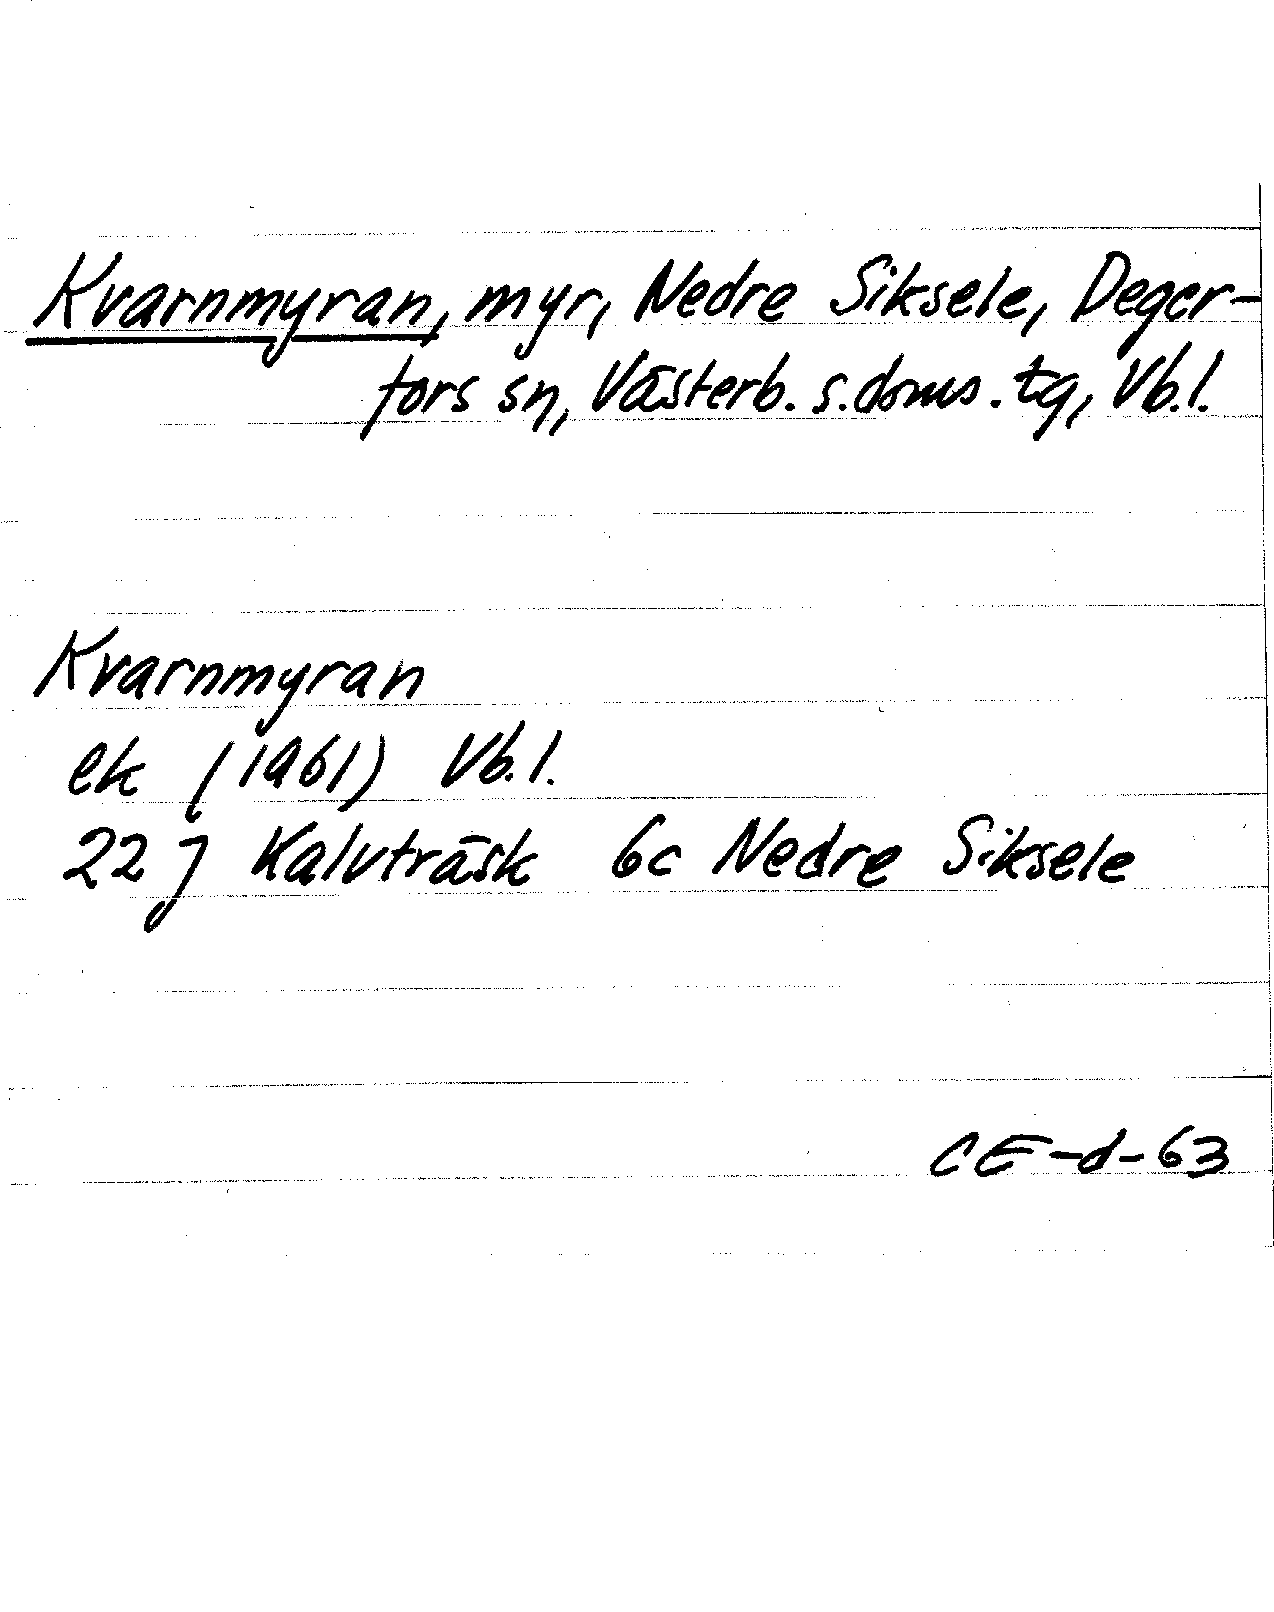 Kvarnmyran, myr, Nedre Siksele, Deger-
fors sn, Västerb. s. doms. tg, Vb. l.
Kvarnmyran
ek (1961) Vb. l.
22 J Kalvträsk 6c Nedre Siksele
CE-d-63